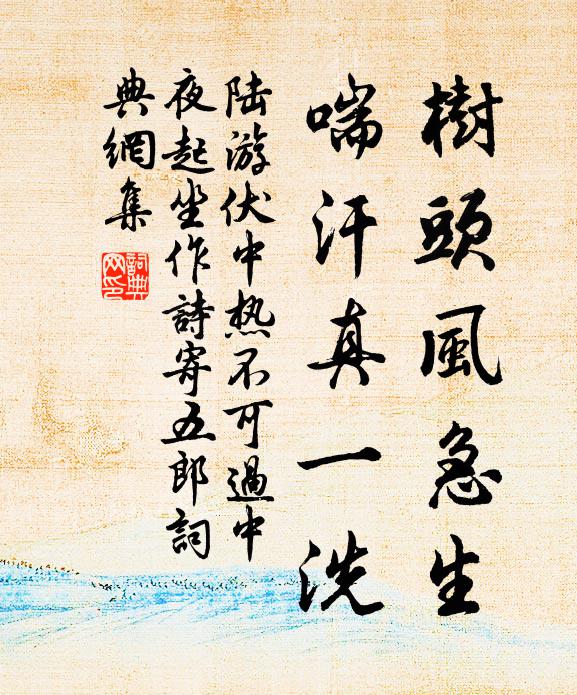 樹頭風急生
喘汗真一洗
陆游伏中热不可過中
夜起坐作詩寄五郎詞
典網集
詞典网印